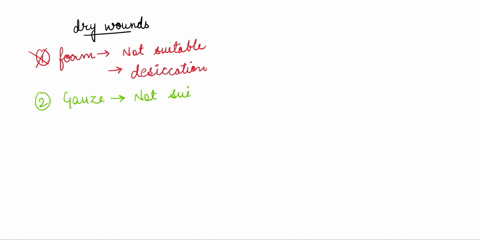 dry wounds
1 foam → Not suitable
→ desiccation
2 Gauze → Not sui